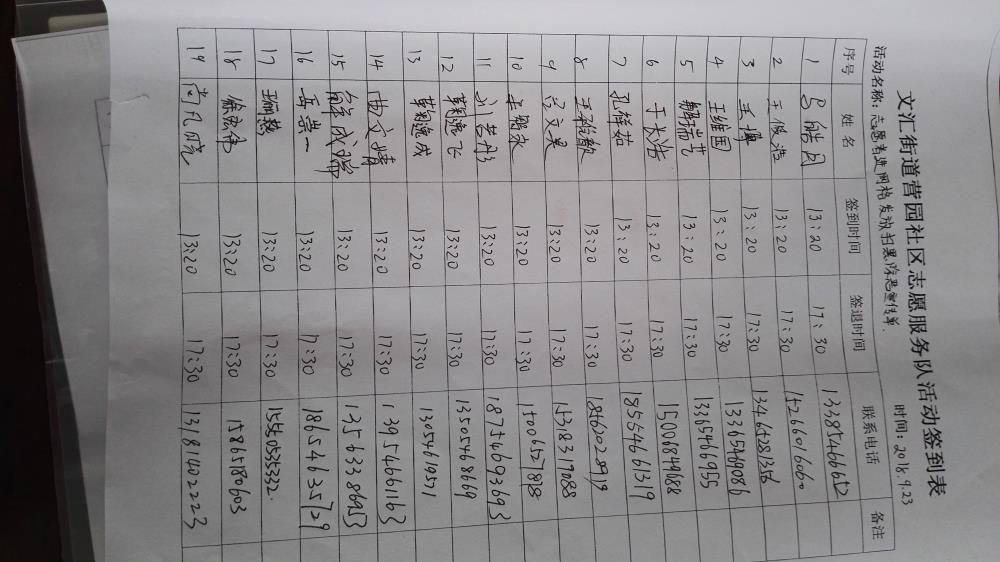 文汇街道营园社区志愿服务队活动签到表
时间:2018.9.23
活动名称:志愿者进网格发放扫黑除恶宣传单.
序号 姓名 签到时间 签退时间 联系电话 备注
1 吕皓月 13:20 17:30 13385466652
2 王俊浩 13:20 17:30 15266016060
3 王博 13:20 17:30 13465281356
4 王维国 13:20 17:30 13365469086
5 解瑞芸 13:20 17:30 13365466955
6 于长浩 13:20 17:30 15006849688
7 孔祥茹 13:20 17:30 18554661319
8 13:20 17:30 18562028919
9 文昊 13:20 17:30 15318319088
10 13:20 17:30 15006521818
11 刘艺彤 13:20 17:30 18754693693
12 鞠逸飞 13:20 17:30 13505468669
13 鞠逸成 13:20 17:30 13054610571
14 曲文婧 13:20 17:30 13954661163
15 解成瑞 13:20 17:30 13563386953
16 岳崇一 13:20 17:30 18654635729
17 13:20 17:30 15550535332
18 徐宏伟 13:20 17:30 15865180603
19 尚凡晓 13:20 17:30 13181402223